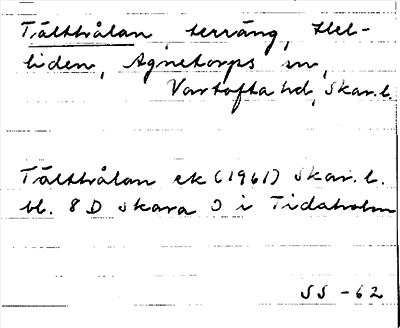 Tälthålan, terräng, Hel-
liden, Agnetorps sn,
Vartofta hd, Skar.l.
Tälthålan ek (1961) Skar.l.
bl. 8 D Skara J i Tidaholm
SS -62